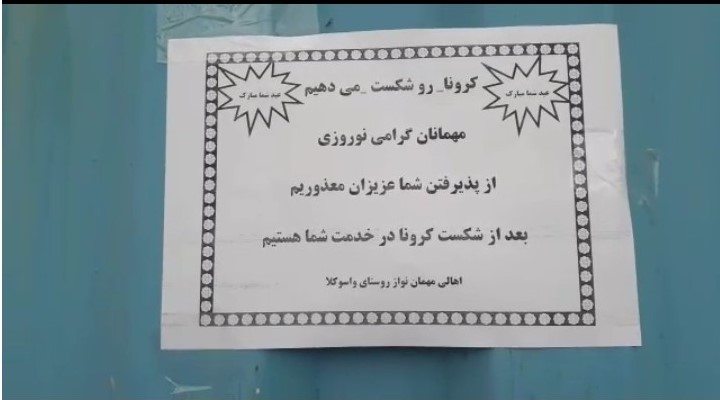 کرونا_ رو شکست _می دهیم
عید شما مبارک
عید شما مبارک
مهمانان گرامی نوروزی
از پذیرفتن شما عزیزان معذوریم
بعد از شکست کرونا در خدمت شما هستیم
اهالی مهمان نواز روستای واسوکلا